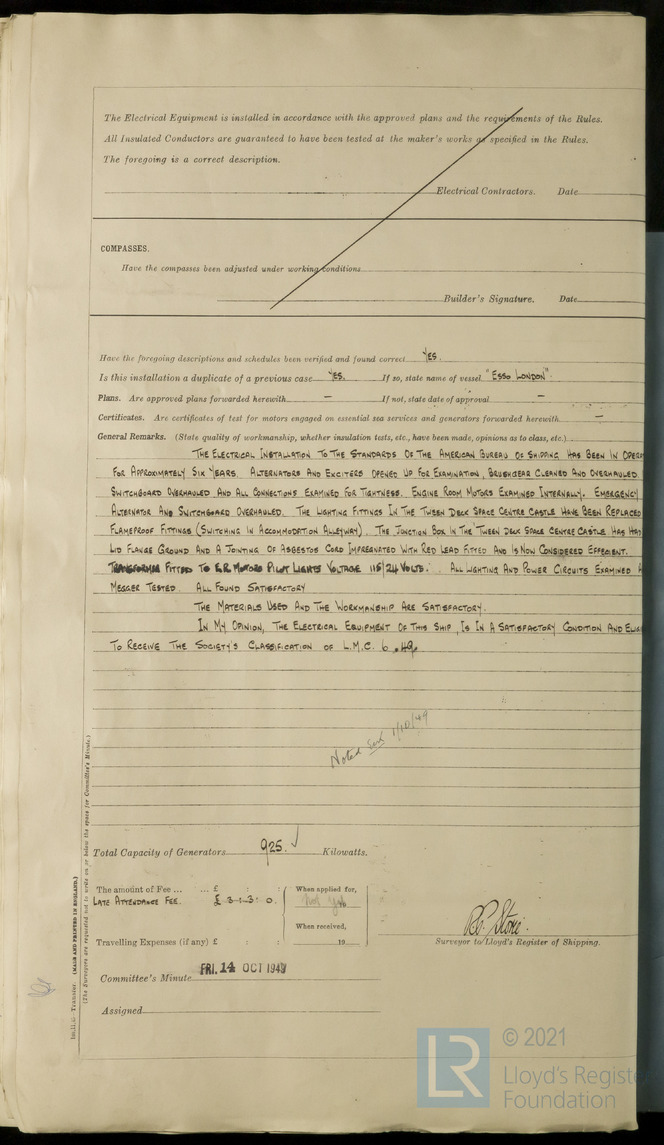 The Electrical Equipment is installed in accordance with the approved plans and the requirements of the Rules.
All Insulated Conductors are guaranteed to have been tested at the maker's works as specified in the Rules.
The foregoing is a correct description.
Electrical Contractors. Date
COMPASSES.
Have the compasses been adjusted under working conditions
Builder's Signature. Date
Have the foregoing descriptions and schedules been verified and found correct YES.
Is this installation a duplicate of a previous case YES. If so, state name of vessel "ESSO LONDON".
Plans. Are approved plans forwarded herewith — If not, state date of approval —
Certificates. Are certificates of test for motors engaged on essential sea services and generators forwarded herewith —
General Remarks. (State quality of workmanship, whether insulation tests, etc., have been made, opinions as to class, etc.)
THE ELECTRICAL INSTALLATION TO THE STANDARDS OF THE AMERICAN BUREAU OF SHIPPING HAS BEEN IN OPER
FOR APPROXIMATELY SIX YEARS. ALTERNATORS AND EXCITERS OPENED UP FOR EXAMINATION, BRUSHGEAR CLEANED AND OVERHAULED
SWITCHBOARD OVERHAULED AND ALL CONNECTIONS EXAMINED FOR TIGHTNESS. ENGINE ROOM MOTORS EXAMINED INTERNALLY. EMERGENCY
ALTERNATOR AND SWITCHBOARD OVERHAULED. THE LIGHTING FITTINGS IN THE TWEEN DECK SPACE CENTRE CASTLE HAVE BEEN REPLACED
FLAMEPROOF FITTINGS (SWITCHING IN ACCOMMODATION ALLEYWAY). THE JUNCTION BOX IN THE 'TWEEN DECK SPACE CENTRE CASTLE HAS HA
LID FLANGE GROUND AND A JOINTING OF ASBESTOS CORD IMPREGNATED WITH RED LEAD FITTED AND IS NOW CONSIDERED EFFECIENT.
TRANSFORMER FITTED TO E.R. MOTORS PILOT LIGHTS VOLTAGE 115/24 VOLTS. ALL LIGHTING AND POWER CIRCUITS EXAMINED A
MEGGER TESTED. ALL FOUND SATISFACTORY
THE MATERIALS USED AND THE WORKMANSHIP ARE SATISFACTORY.
IN MY OPINION, THE ELECTRICAL EQUIPMENT OF THIS SHIP, IS IN A SATISFACTORY CONDITION AND ELIG
TO RECEIVE THE SOCIETY'S CLASSIFICATION OF L.M.C. 6.49.
Noted 1/10/49
Total Capacity of Generators 925. Kilowatts.
The amount of Fee ... ... £ : :
LATE ATTENDANCE FEE. £ 3:3:0.
When applied for,
When received,
19
Travelling Expenses (if any) £ : :
Surveyor to Lloyd's Register of Shipping.
Committee's Minute FRI. 14 OCT 1949
Assigned
(MADE AND PRINTED IN ENGLAND.)
(The Surveyors are requested not to write on or below the space for Committee's Minute.)
Transfer
LR
© 2021
Lloyd's Registe
Foundation